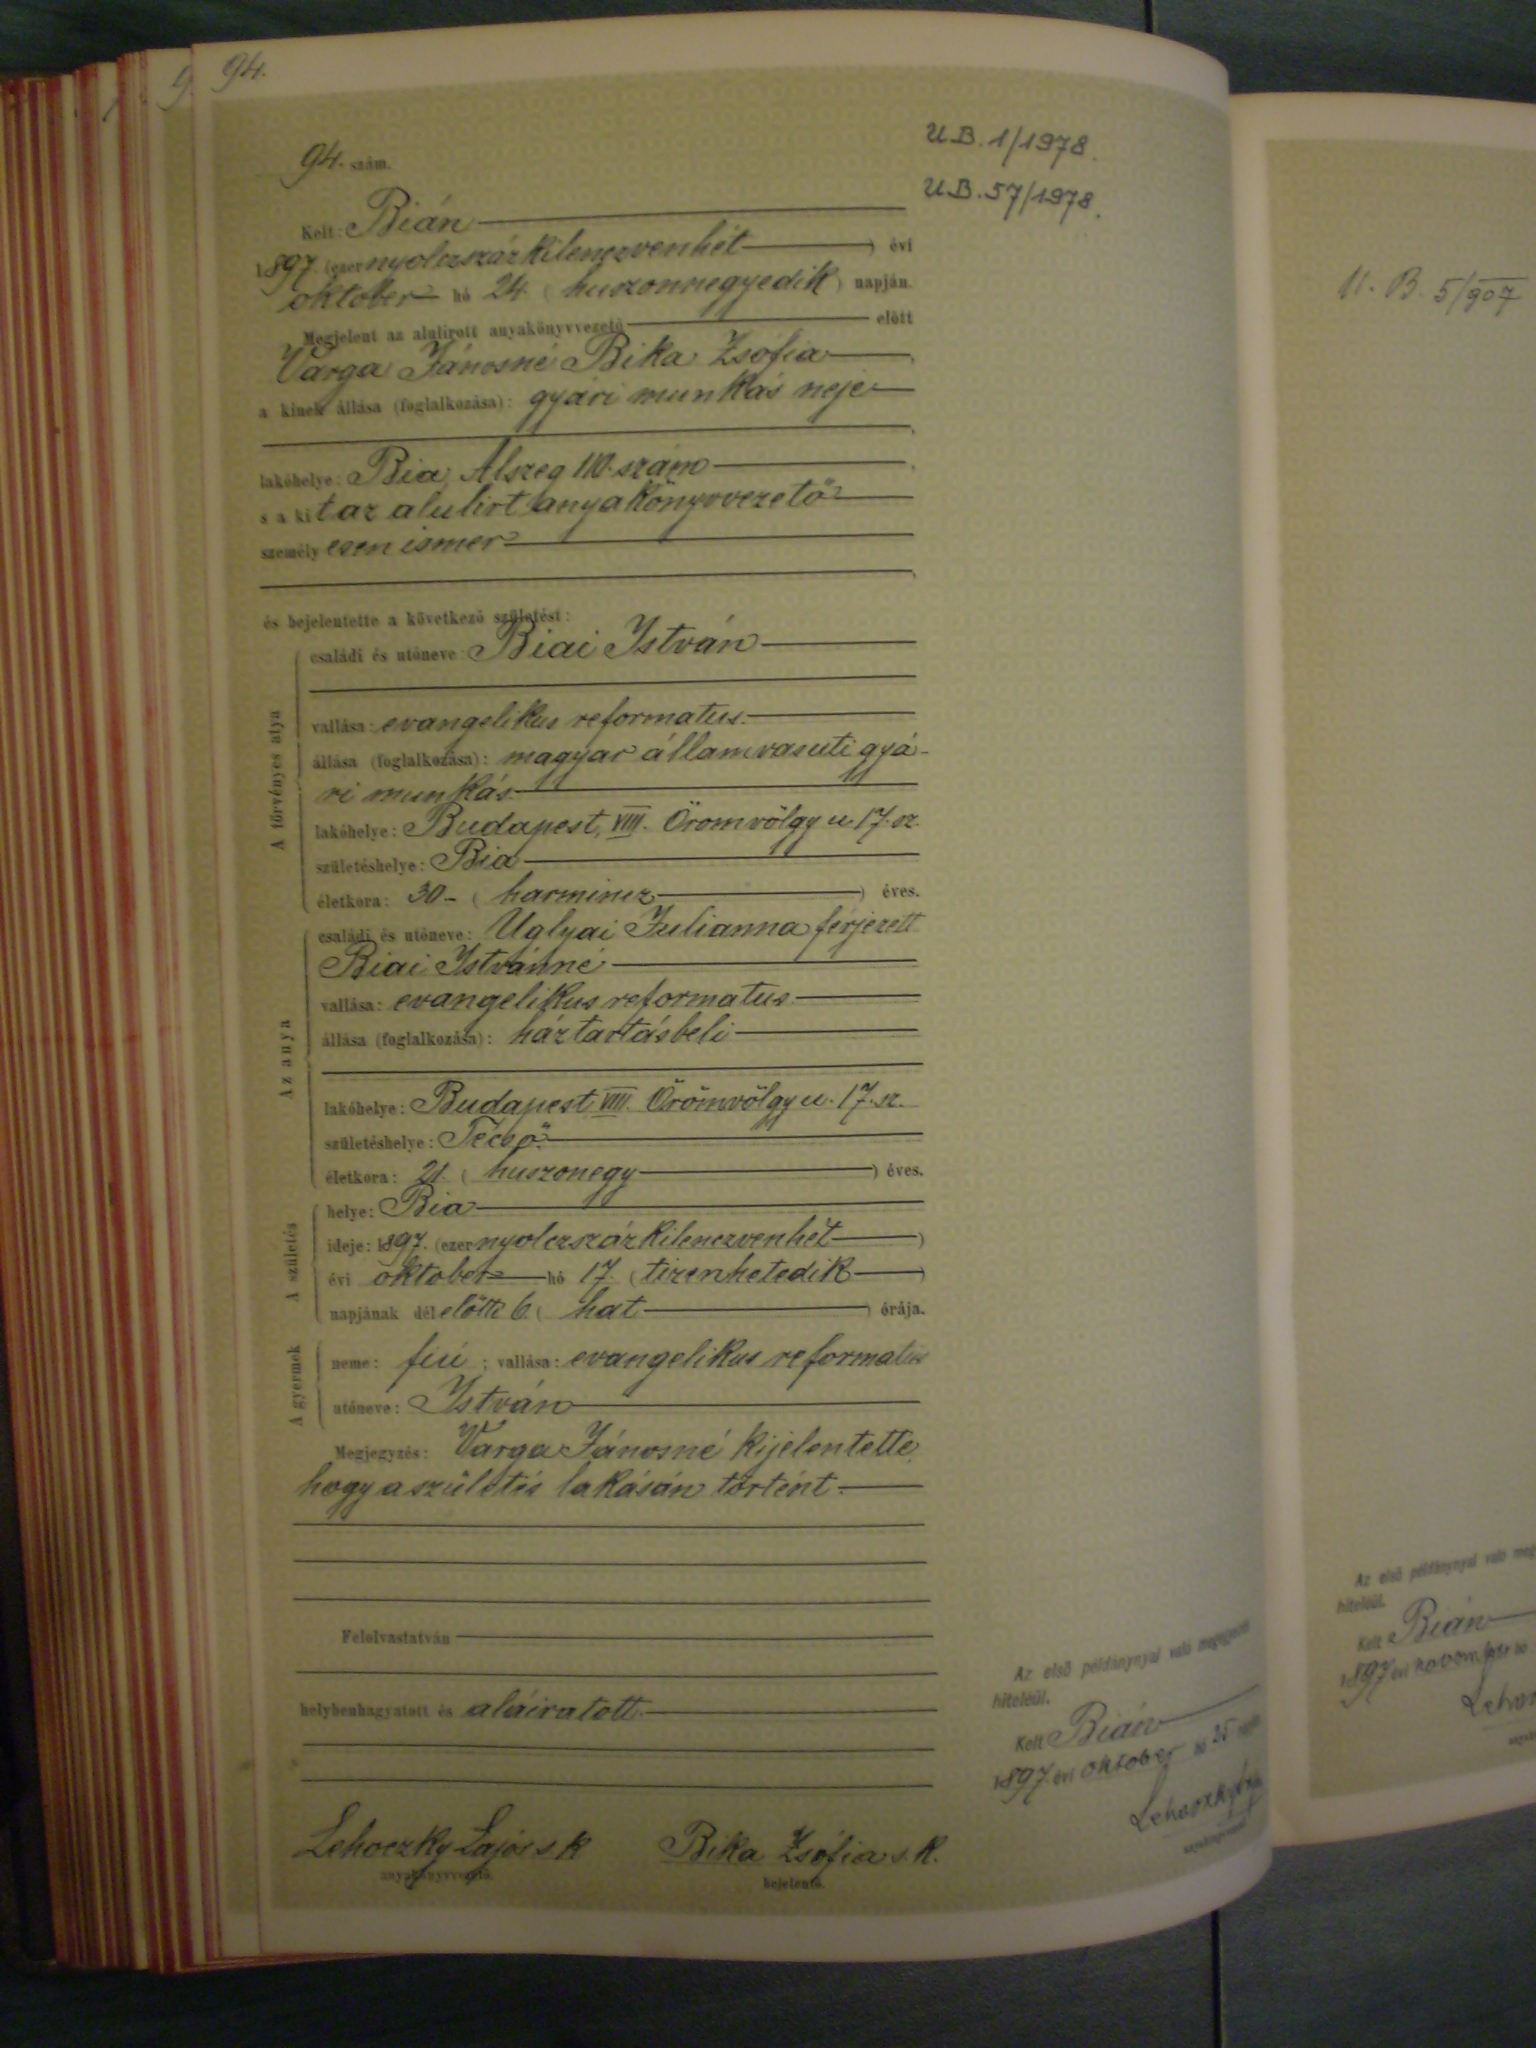 94.
94. szám.
U.B. 1/1978.
U.B. 57/1978.
Kelt: Bián
1897. (ezernyolczszázkilenczvenhét) évi
oktober hó 24. (huszonnegyedik) napján.
Megjelent az alulirott anyakönyvvezető előtt
Varga Jánosné Bika Zsófia,
a kinek állása (foglalkozása): gyári munkás neje
lakóhelye: Bia, Alszeg 110. szám,
s a kit az alulirt anyakönyvvezető
személyesen ismer
és bejelentette a következő születést:
A törvényes atya
családi és utóneve: Biai István
vallása: evangelikus reformatus.
állása (foglalkozása): magyar államvasuti gyá-
ri munkás
lakóhelye: Budapest, VIII. Örömvölgy u. 17. sz.
születéshelye: Bia
életkora: 30 - (harmincz) éves.
Az anya
családi és utóneve: Uglyai Julianna férjezett
Biai Istvánné
vallása: evangelikus reformatus
állása (foglalkozása): háztartásbeli
lakóhelye: Budapest VIII. Örömvölgy u. 17. sz.
születéshelye: Técső.
életkora: 21. (huszonegy) éves.
A születés
helye: Bia
ideje: 1897. (ezernyolczszázkilenczvenhét)
évi oktober hó 17. (tizenhetedik)
napjának délelőtti 6. (hat) órája.
A gyermek
neme: fiú; vallása: evangelikus reformatus
utóneve: István
Megjegyzés: Varga Jánosné kijelentette,
hogy a születés lakásán történt.
Felolvastatván
helybenhagyatott és aláiratott.
Lehoczky Lajos s. k
anyakönyvvezető.
Bika Zsófia s. k.
bejelentő.
Az első példánynyal való megegyezés
hiteléül.
Kelt Bián
1897. évi oktober hó 25 napján
Lehoczky
anyakönyvvezető
U. B. 5/907
Az első példánynyal való meg
hiteléül.
Kelt Bián
1897 évi november hó